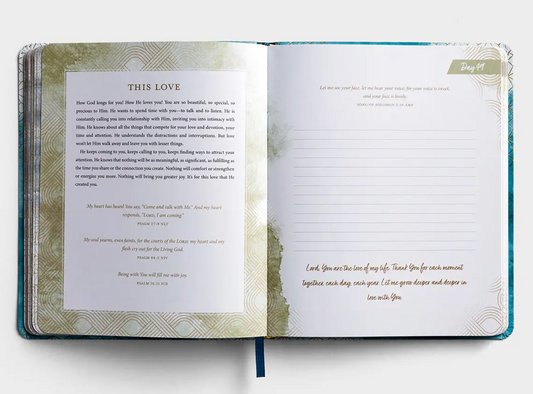 THIS LOVE
How God longs for you! How He loves you! You are so beautiful, so special, so
precious to Him. He wants to spend time with you—to talk and to listen. He is
constantly calling you into relationship with Him, inviting you into intimacy with
Him. He knows about all the things that compete for your love and devotion, your
time and attention. He understands the distractions and interruptions. But love
won't let Him walk away and leave you with lesser things.
He keeps coming to you, keeps calling to you, keeps finding ways to attract your
attention. He knows that nothing will be as meaningful, as significant, as fulfilling as
the time you share or the connection you create. Nothing will comfort or strengthen
or energize you more. Nothing will bring you greater joy. It's for this love that He
created you.
My heart has heard You say, "Come and talk with Me." And my heart
responds, "LORD, I am coming."
PSALM 27:8 NLT
My soul yearns, even faints, for the courts of the LORD; my heart and my
flesh cry out for the Living God.
PSALM 84:2 NIV
Being with You will fill me with joy.
PSALM 16:11
Day 49
Let me see your face, let me hear your voice; for your voice is sweet,
and your face is lovely.
SONG OF SOLOMON 2:14
Lord, You are the love of my life. Thank You for each moment
together, each day, each year. Let me grow deeper and deeper in
love with You.